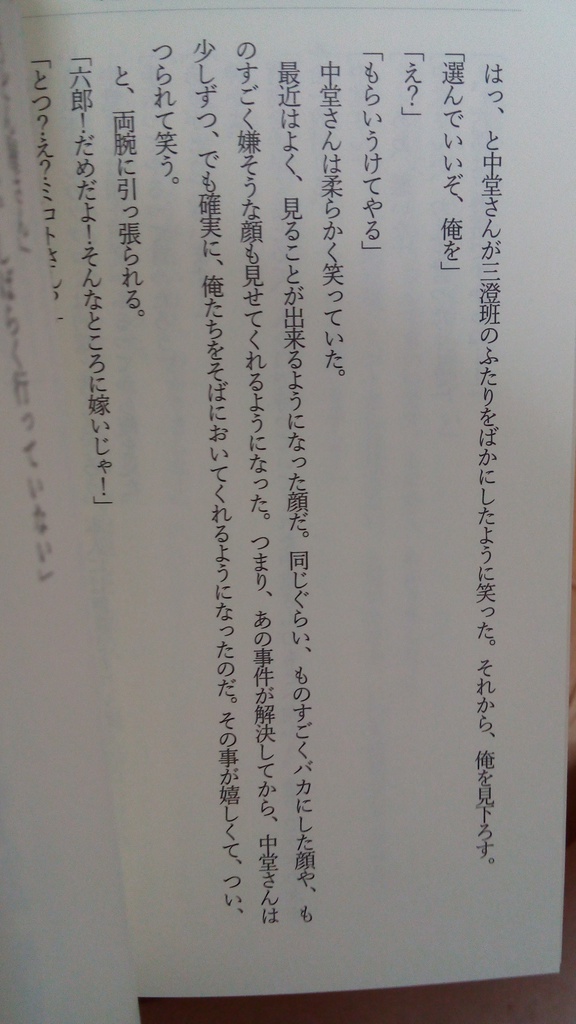 はっ、と中堂さんが三澄班のふたりをばかにしたように笑った。それから、俺を見下ろす。
「選んでいいぞ、俺を」
「え？」
「もらいうけてやる」
中堂さんは柔らかく笑っていた。
最近はよく、見ることが出来るようになった顔だ。同じぐらい、ものすごくバカにした顔や、も
のすごく嫌そうな顔も見せてくれるようになった。つまり、あの事件が解決してから、中堂さんは
少しずつ、でも確実に、俺たちをそばにおいてくれるようになったのだ。その事が嬉しくて、つい、
つられて笑う。
と、両腕に引っ張られる。
「六郎！だめだよ！そんなところに嫁いじゃ！」
「とつ？え？ミコトさん？